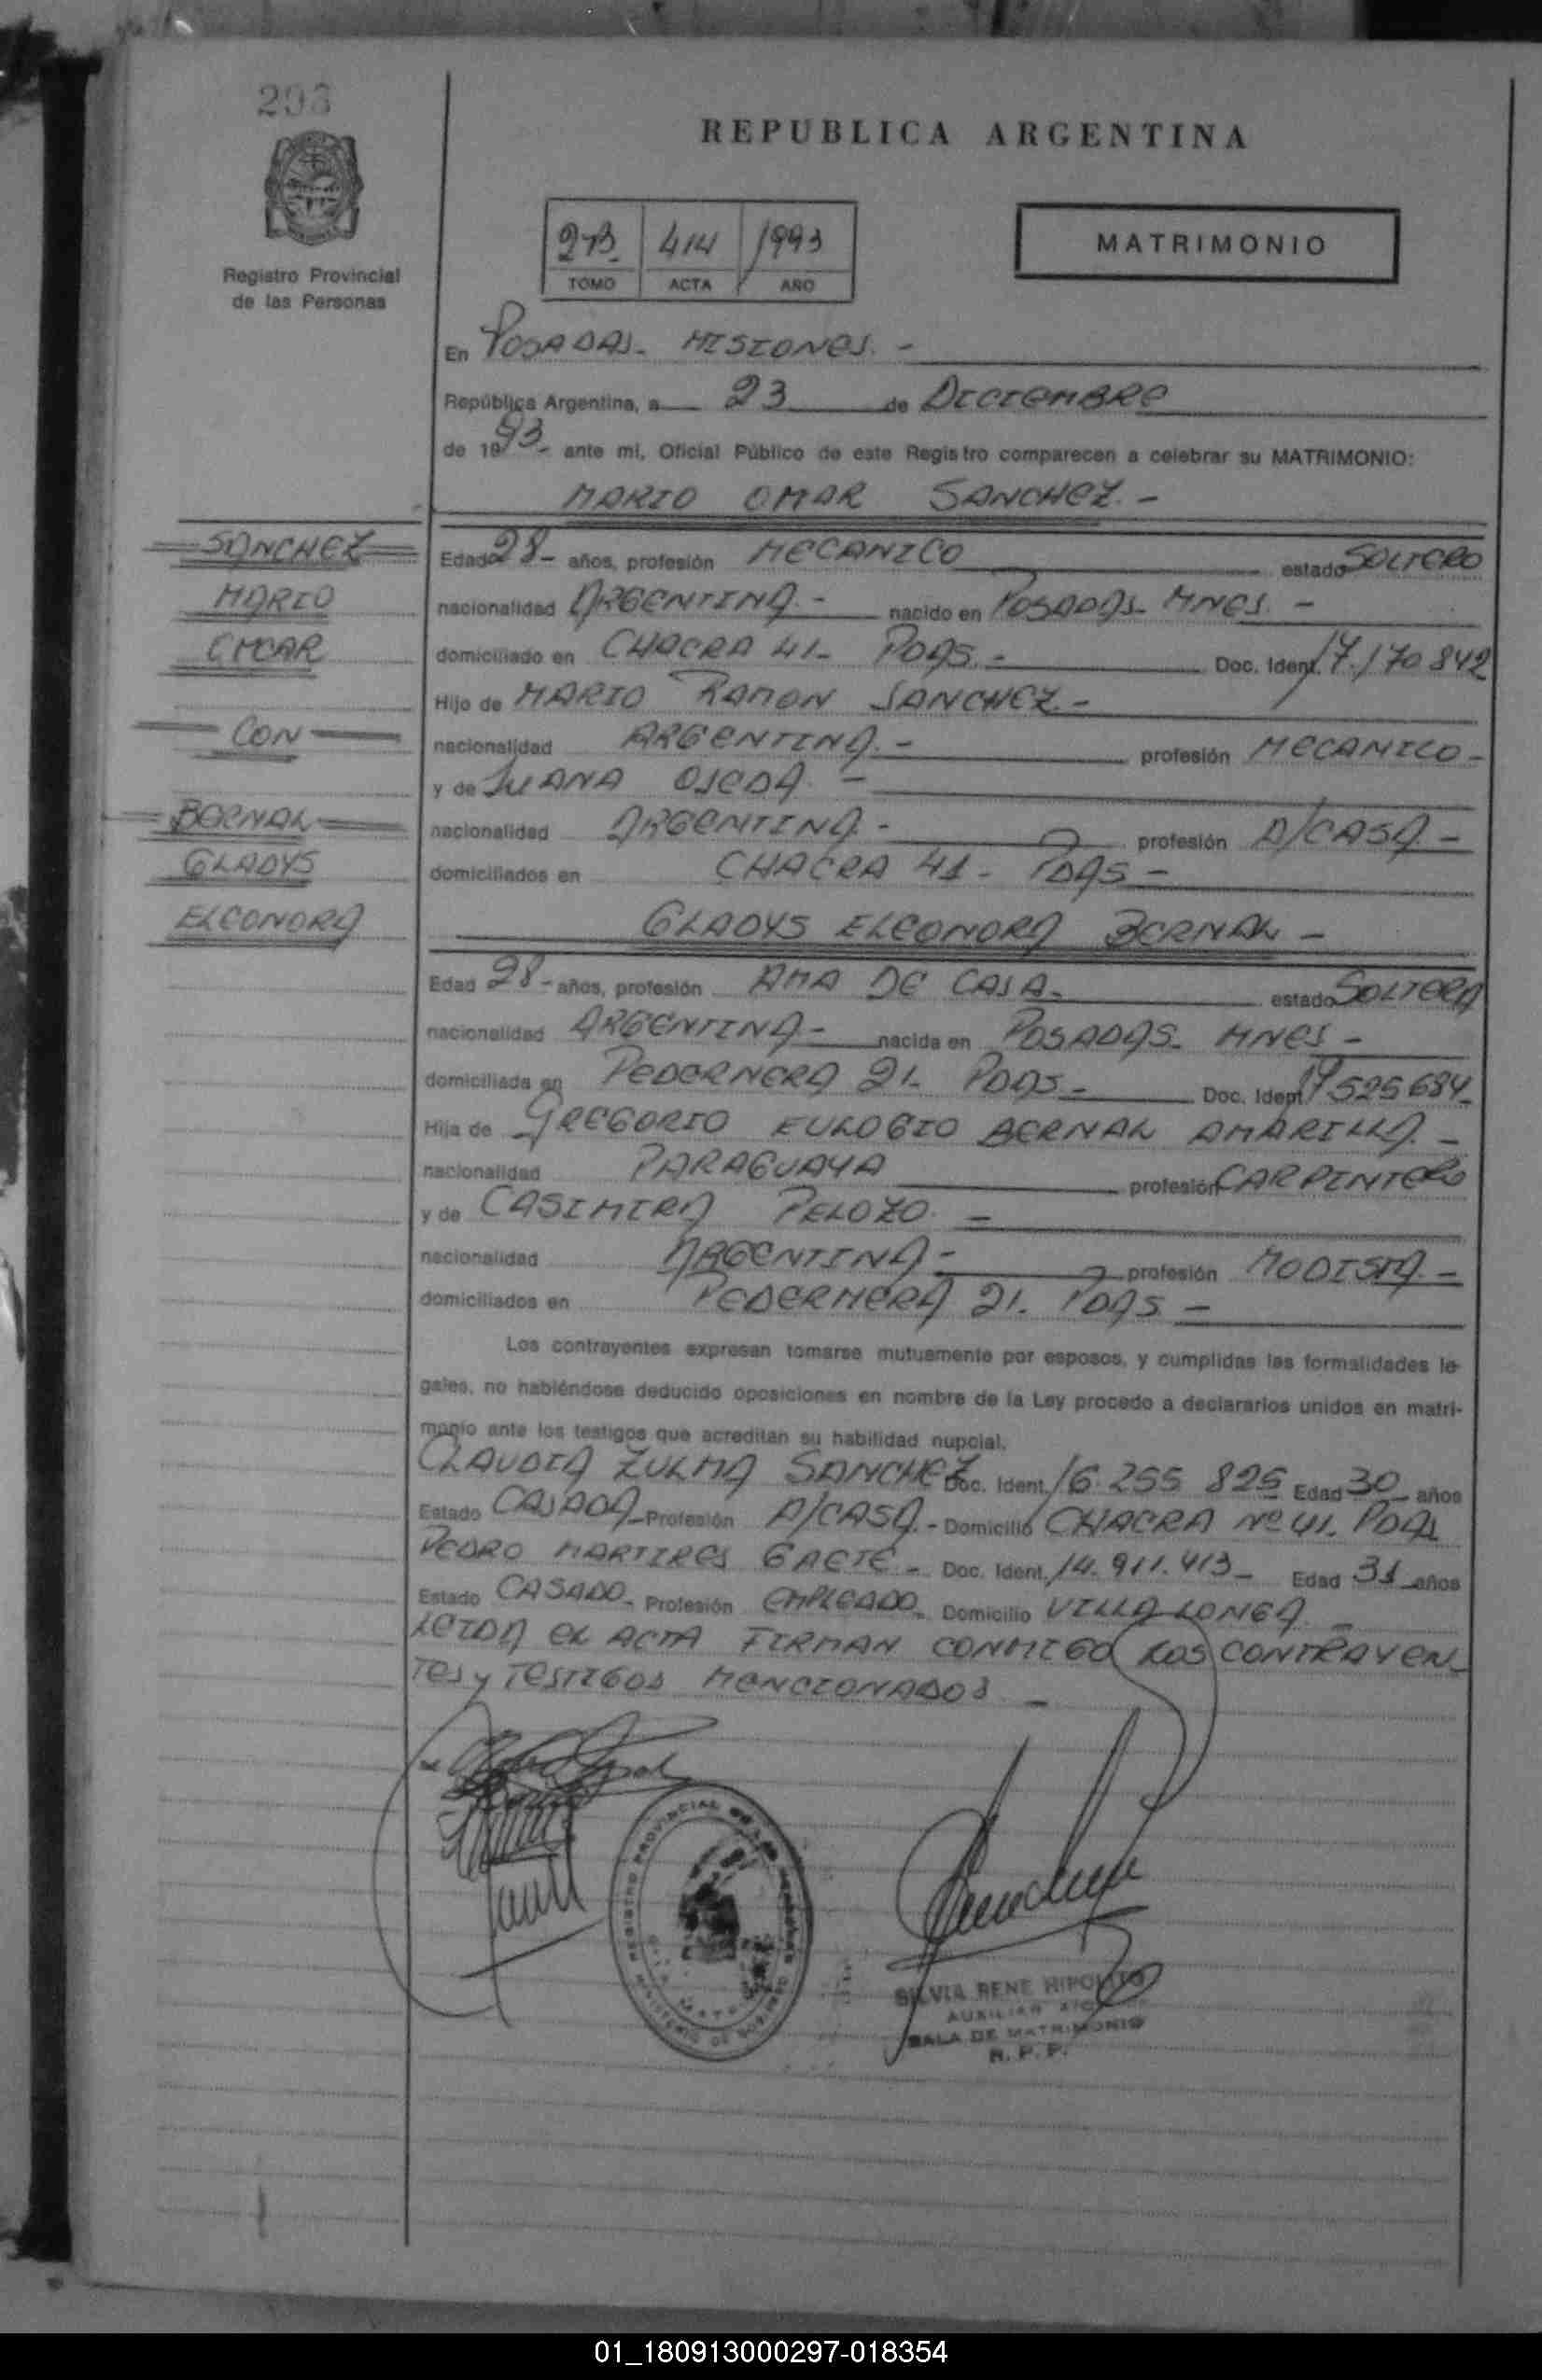 293
REPUBLICA ARGENTINA
Registro Provincial
de las Personas
2-B 414 1993
TOMO ACTA AÑO
MATRIMONIO
En POSADAS- MISIONES.-
República Argentina, a 23 de DICIEMBRE
de 1993- ante mi, Oficial Público de este Registro comparecen a celebrar su MATRIMONIO:
MARIO OMAR SANCHEZ.-
SANCHEZ
MARIO
OMAR
CON
BERNAL
GLADYS
ELEONORA
Edad 28- años, profesión MECANICO estado SOLTERO
nacionalidad ARGENTINA.- nacido en POSADAS- MNES.-
domiciliado en CHACRA 41- PDAS.- Doc. Ident. 17.170.842
Hijo de MARIO RAMON SANCHEZ.-
nacionalidad ARGENTINA.- profesión MECANICO-
y de JUANA OJEDA.-
nacionalidad ARGENTINA.- profesión A/CASA.-
domiciliados en CHACRA 41- PDAS-
GLADYS ELEONORA BERNAL-
Edad 28- años, profesión AMA DE CASA- estado SOLTERA
nacionalidad ARGENTINA- nacida en POSADAS- MNES-
domiciliada en PEDERNERA 21- PDAS- Doc. Ident. 17525684-
Hija de GREGORIO EULOGIO BERNAL AMARILLA.-
nacionalidad PARAGUAYA profesión CARPINTERO
y de CASIMIRA PELOZO.-
nacionalidad ARGENTINA- profesión MODISTA.-
domiciliados en PEDERNERA 21. PDAS-
Los contrayentes expresan tomarse mutuamente por esposos, y cumplidas las formalidades le-
gales, no habiéndose deducido oposiciones en nombre de la Ley procedo a declararlos unidos en matri-
monio ante los testigos que acreditan su habilidad nupcial.
CLAUDIA ZULMA SANCHEZ Doc. Ident. 16.255 825 Edad 30- años
Estado CASADA- Profesión A/CASA.- Domicilio CHACRA Nº 41. PDAS
PEDRO MARTIRES GAETE- Doc. Ident. 14.911.413- Edad 31 años
Estado CASADO- Profesión EMPLEADO- Domicilio VILLA LONGA.-
LEIDA EL ACTA FIRMAN CONMIGO LOS CONTRAYEN-
TES y TESTIGOS MENCIONADOS.-
REGISTRO PROVINCIAL DE LAS PERSONAS
MINISTERIO DE GOBIERNO
SILVIA RENE HIPOLITO
AUXILIAR
SALA DE MATRIMONIO
R. P. P.
01_180913000297-018354